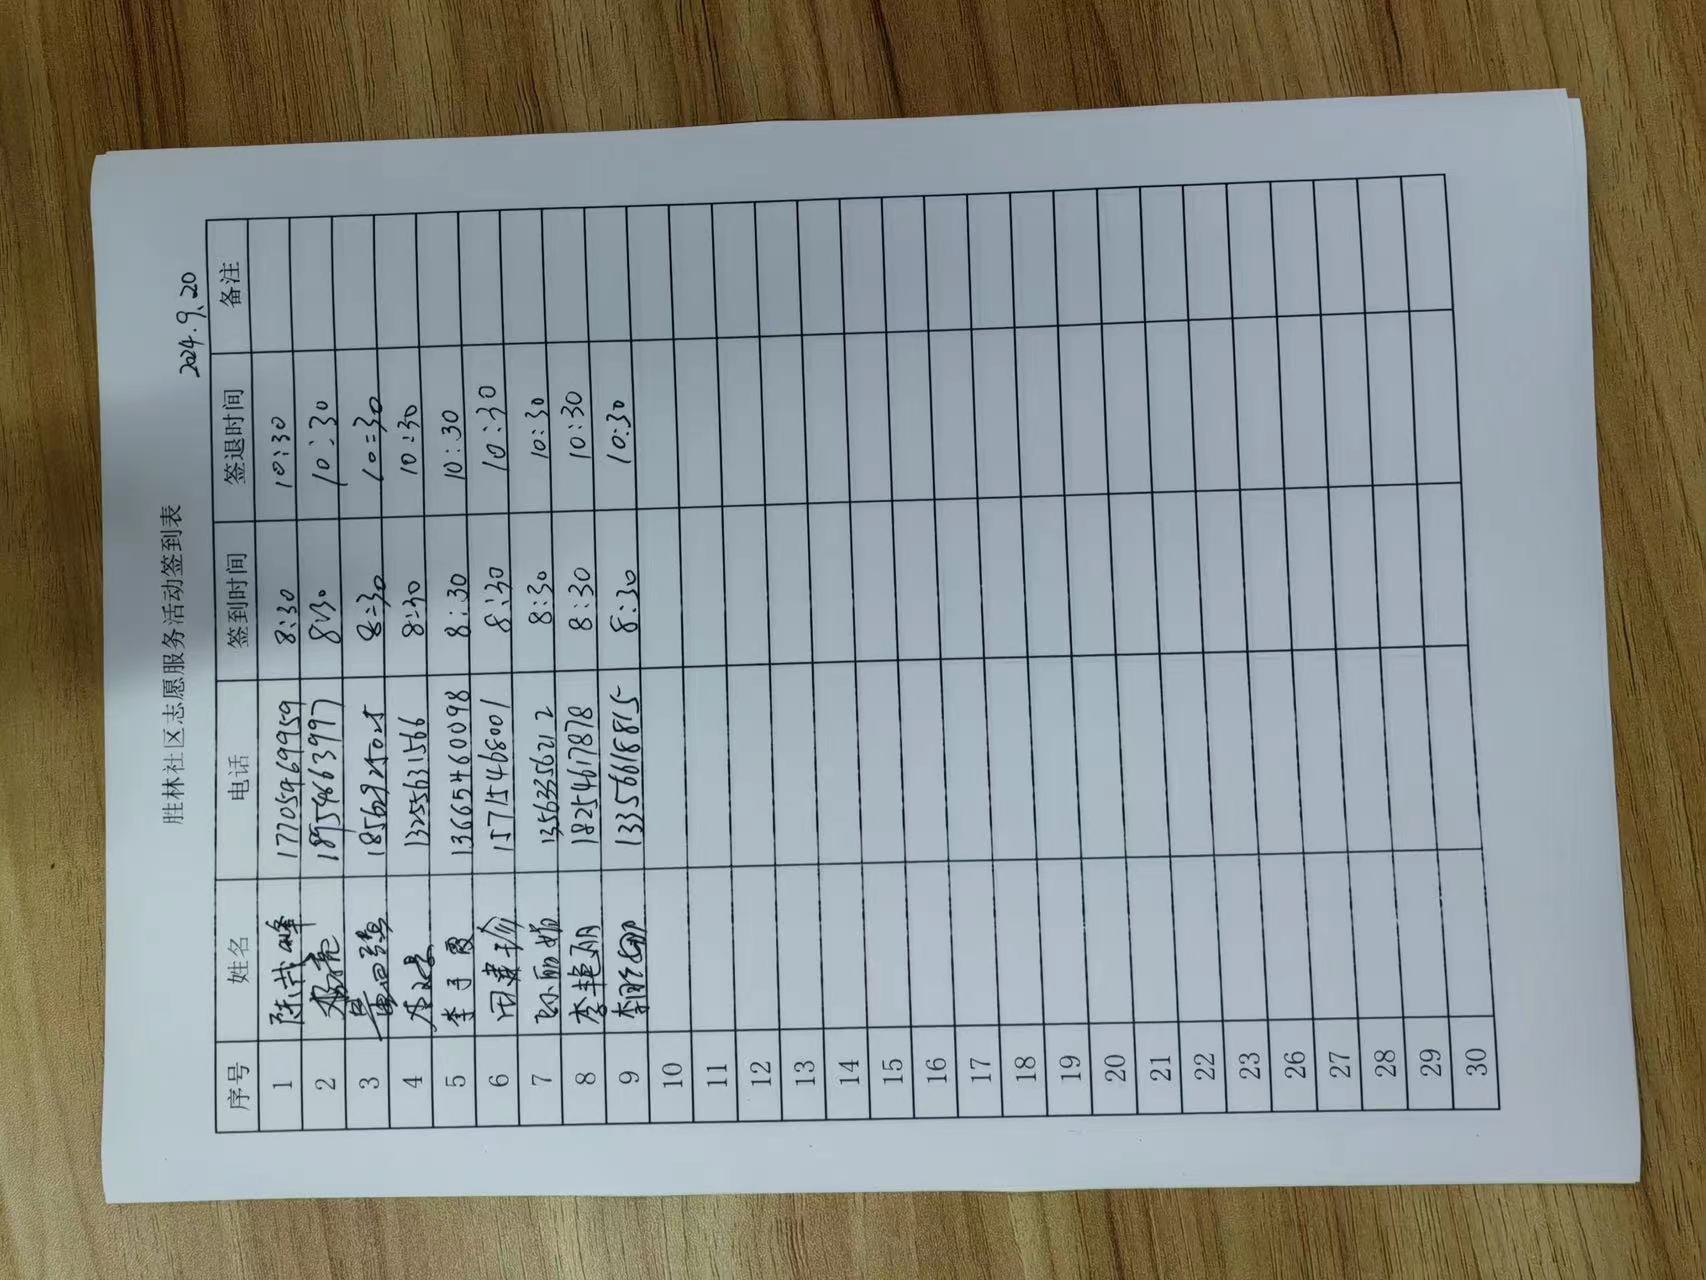 胜林社区志愿服务活动签到表
2024.9.20
序号 姓名 电话 签到时间 签退时间 备注
1 陈 峰 17705469959 8:30 10:30
2 杨亮 18954663997 8:30 10:30
3 8:30 10:30
4 13255631566 8:30 10:30
5 李子霞 13665460098 8:30 10:30
6 田 珍 15715468001 8:30 10:30
7 孙丽娟 13563356212 8:30 10:30
8 李艳丽 18254617878 8:30 10:30
9 李 13356618815 8:30 10:30
10
11
12
13
14
15
16
17
18
19
20
21
22
23
26
27
28
29
30